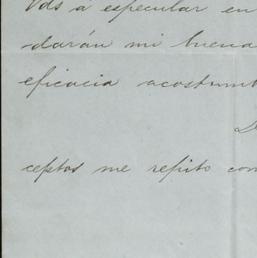 Vds á especular en
darán mi buena
eficacia acostumb
ceptos me repito con